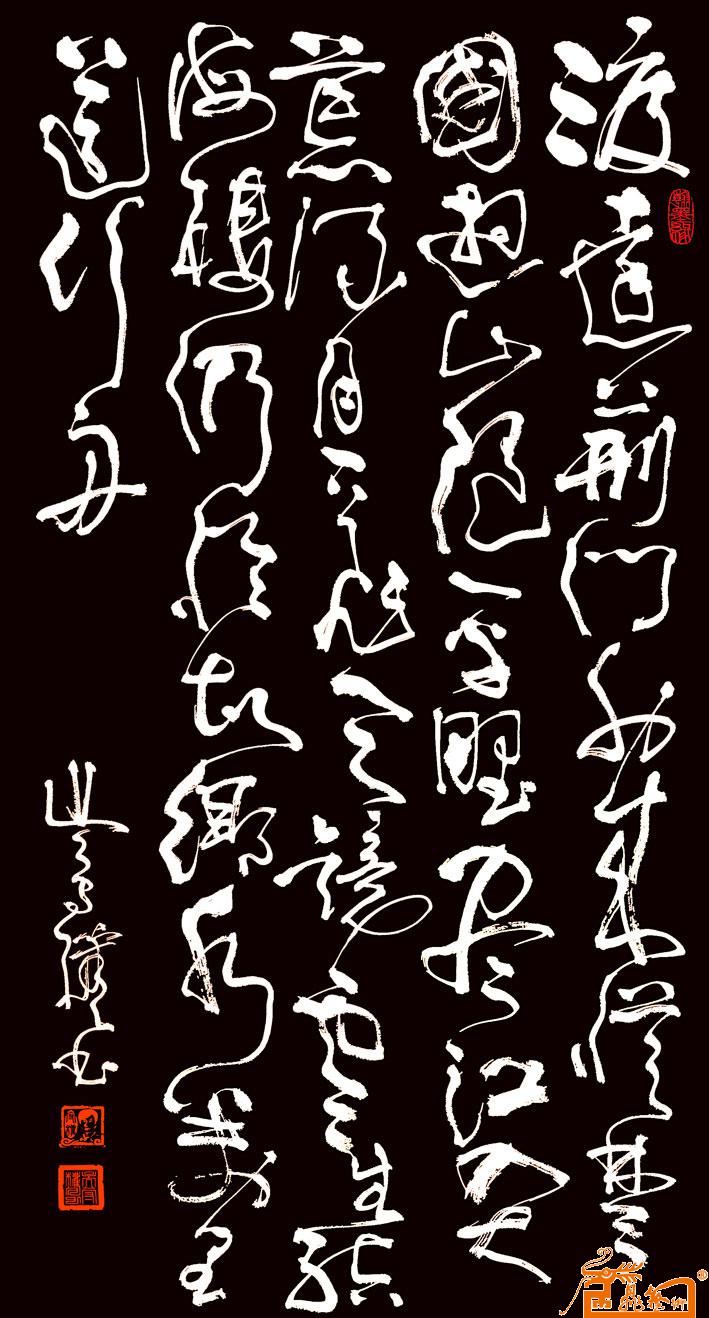 渡遠荆門外來從楚
國遊山隨平野盡江入大
荒流月下飛天鏡雲生結
海樓仍憐故鄉水萬里
送行舟
書